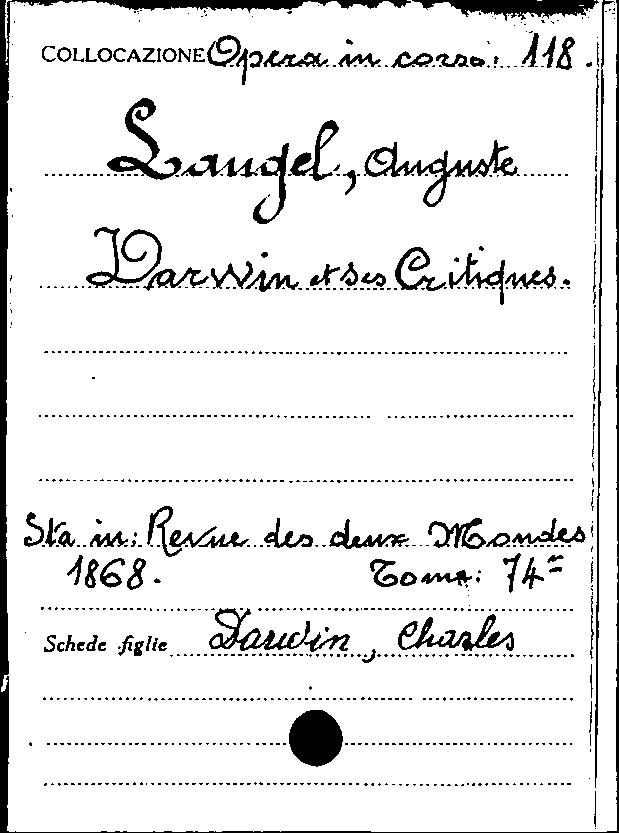 COLLOCAZIONE Opera in corso: 118.
Laugel, Auguste
Darwin et ses Critiques.
Sta in: Revue des deux Mondes
1868. Tome: 74=
Schede figlie Darwin, Charles